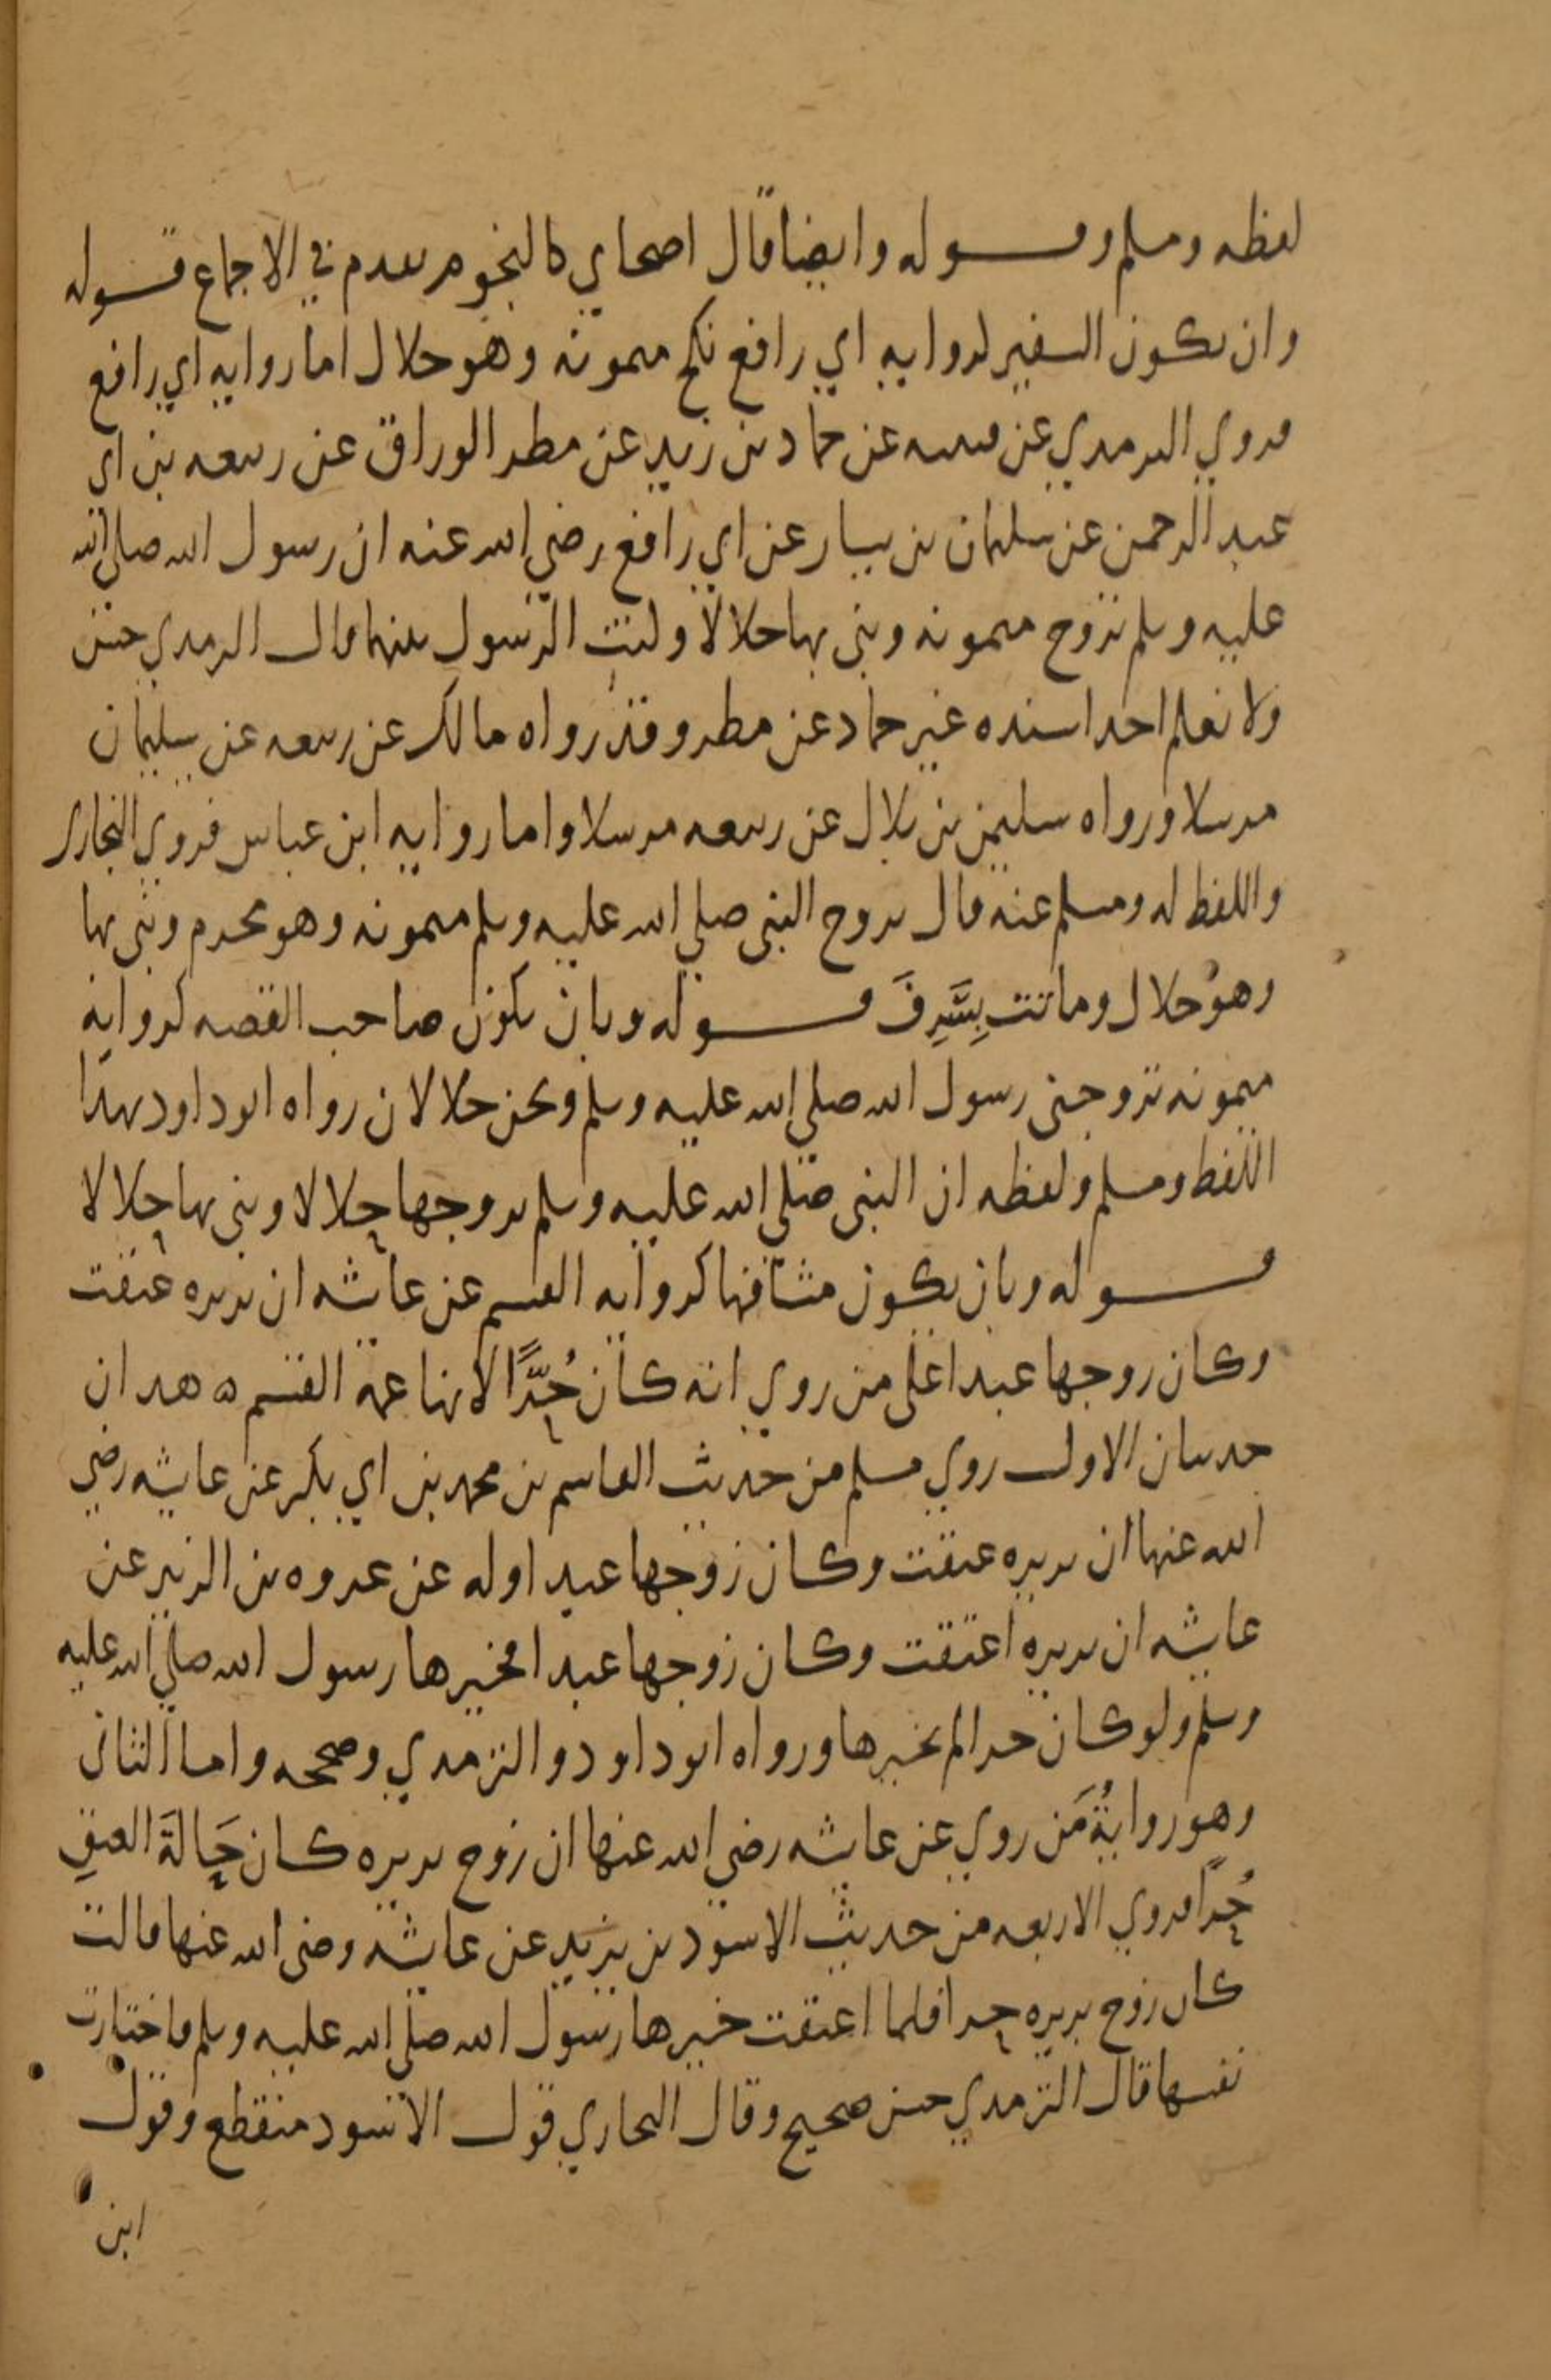 لفظه ومسلم وقـــوله وايضا قال اصحابي كالنجوم تقدم في الاجماع قـــوله
وان يكون السفير لروايه ابي رافع نكح ميمونه وهو حلال اما روايه ابي رافع
فروي الترمدي عن قتيبه عن حماد بن زيد عن مطر الوراق عن ربيعه بن ابي
عبد الرحمن عن سليمان بن يسار عن ابي رافع رضي الله عنه ان رسول الله صلى الله
عليه وسلم تزوج ميمونه وبنى بها حلالا وكنت الرسول بينهما قال الترمدي حسن
ولا نعلم احدا اسنده غير حماد عن مطر وقد رواه مالك عن ربيعه عن سليمان
مرسلا ورواه سليمن بن بلال عن ربيعه مرسلا واما روايه ابن عباس فروي البخاري
واللفظ له ومسلم عنه قال تزوج النبي صلي الله عليه وسلم ميمونه وهو محرم وبنى بها
وهو حلال وماتت بِسَرِفَ قـــوله وبان يكون صاحب القصه كروايه
ميمونه تزوجني رسول الله صلي الله عليه وسلم ونحن حلالان رواه ابوداود بهذا
اللفظ ومسلم ولفظه ان النبي صلى الله عليه وسلم تزوجها حلالا وبنى بها حلالا
قـــوله وبان يكون مشافها كروايه القسم عن عائشه ان بريره عتقت
وكان زوجها عبدا على من روي انه كان حُرًّا لانها عمة القسم ه هدان
حديثان الاول روي مسلم من حديث القاسم بن محمد بن ابي بكر عن عايشه رضي
الله عنها ان بريره عتقت وكان زوجها عبدا وله عن عروه بن الزبير عن
عايشه ان بريره اعتقت وكان زوجها عبدا فخيرها رسول الله صلي الله عليه
وسلم ولو كان حرا لم يخيرها ورواه ابوداود والترمدي وصححه واما الثاني
وهو روايةُ مَن روي عن عايشه رضي الله عنها ان زوج بريره كان حَالةَ العتقِ
حُرًا فروي الاربعه من حديث الاسود بن يزيد عن عايشه رضى الله عنها قالت
كان زوج بريره حرا فلما اعتقت خيرها رسول الله صلى الله عليه وسلم فاختارت
نفسها قال الترمدي حسن صحيح وقال البخاري قول الاسود منقطع وقول
ابن